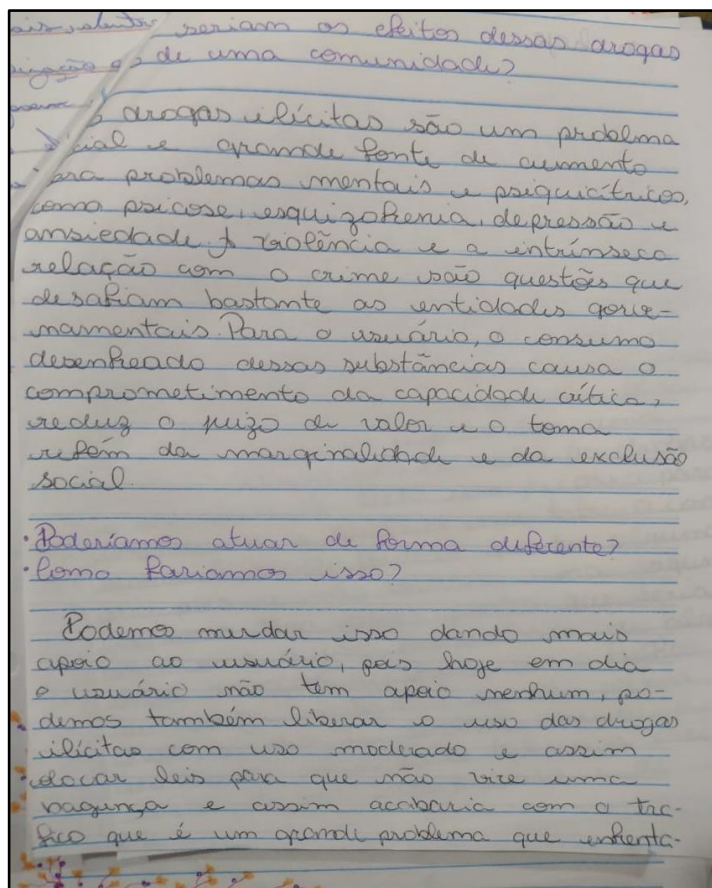 seriam os efeitos dessas drogas
de uma comunidade?
drogas ilícitas são um problema
e grande fonte de aumento
para problemas mentais e psiquicítricos,
como psicose, esquizofrenia, depressão e
ansiedade. A violência e a intrínseca
relação com o crime são questões que
desafiam bastante as entidades gover-
namentais. Para o usuário, o consumo
desenfreado dessas substâncias causa o
comprometimento da capacidade crítica,
reduz o juizo de valor e o torna
refém da marginalidade e da exclusão
social.
• Poderíamos atuar de forma diferente?
• Como fariamos isso?
Podemos mudar isso dando mais
apoio ao usuário, pois hoje em dia
o usuário não tem apoio nenhum, po-
demos também liberar o uso das drogas
ilícitas com uso moderado e assim
colocar leis para que não vire uma
bagunça e assim acabaria com o tra-
fico que é um grande problema que enfrenta-